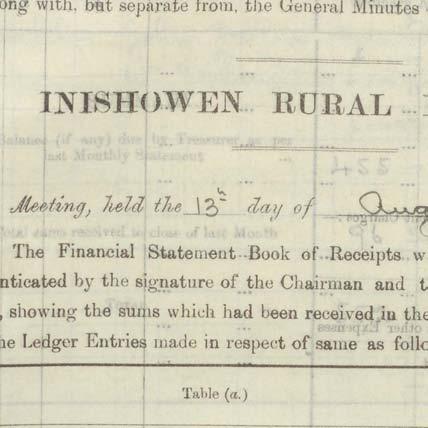 ong with, but separate from, the General Minutes
INISHOWEN RURAL
Balance (if any) due by Treasurer as per
last Monthly Statement
Meeting, held the 13th day of Aug
Total sums received to close of last Month
The Financial Statement Book of Receipts w
nticated by the signature of the Chairman and t
, showing the sums which had been received in the
other Expenses
he Ledger Entries made in respect of same as follo
Table (a.)